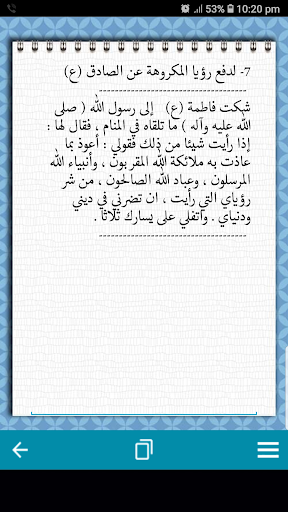 53% 10:20 pm
7- لدفع رؤيا المكروهة عن الصادق (ع)
--------------------------------------
شكت فاطمة (ع) إلى رسول الله ( صلى
الله عليه وآله ) ما تلقاه في المنام ، فقال لها :
إذا رأيت شيئا من ذلك فقولي : أعوذ بما
عاذت به ملائكة الله المقربون ، وأنبياء الله
المرسلون ، وعباد الله الصالحون ، من شر
رؤياي التي رأيت ، ان تضرني في ديني
ودنياي . واتفلي على يسارك ثلاثا .
--------------------------------------